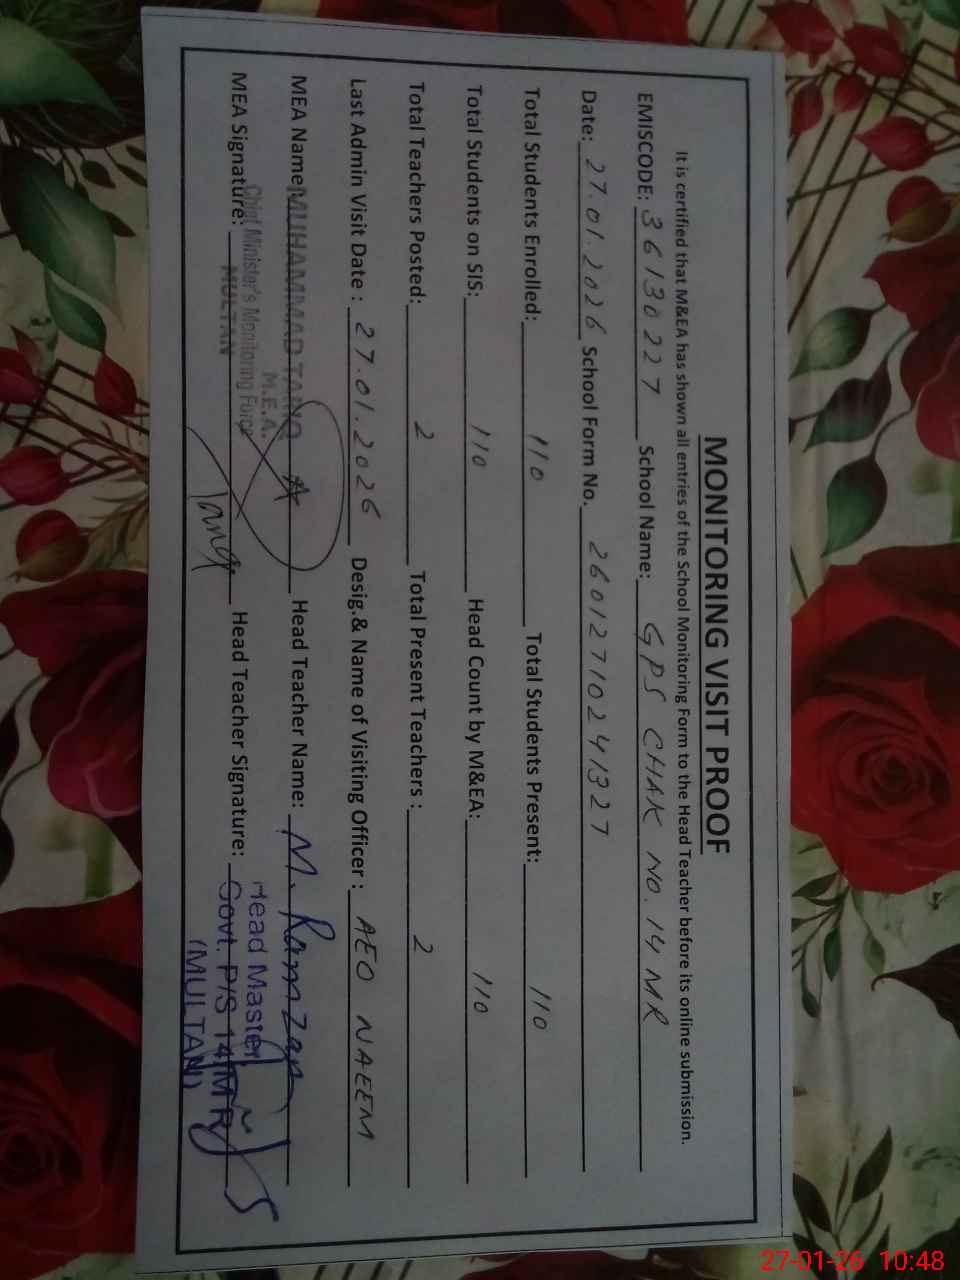 MONITORING VISIT PROOF
It is certified that M&EA has shown all entries of the School Monitoring Form to the Head Teacher before its online submission.
EMISCODE: 36130227 School Name: GPS CHAK NO. 14 MR
Date: 27.01.2026 School Form No. 26012710241327
Total Students Enrolled: 110 Total Students Present: 110
Total Students on SIS: 110 Head Count by M&EA: 110
Total Teachers Posted: 2 Total Present Teachers : 2
Last Admin Visit Date : 27.01.2026 Desig.& Name of Visiting Officer : AEO NAEEM
MEA Name MUHAMMAD TARIQ Head Teacher Name: M. Ramzan
M.E.A.
Chief Minister's Monitoring Force
MULTAN
MEA Signature: Tariq Head Teacher Signature:
Head Master
Govt. P/S 14 MR
(MULTAN)
27-01-26 10:48